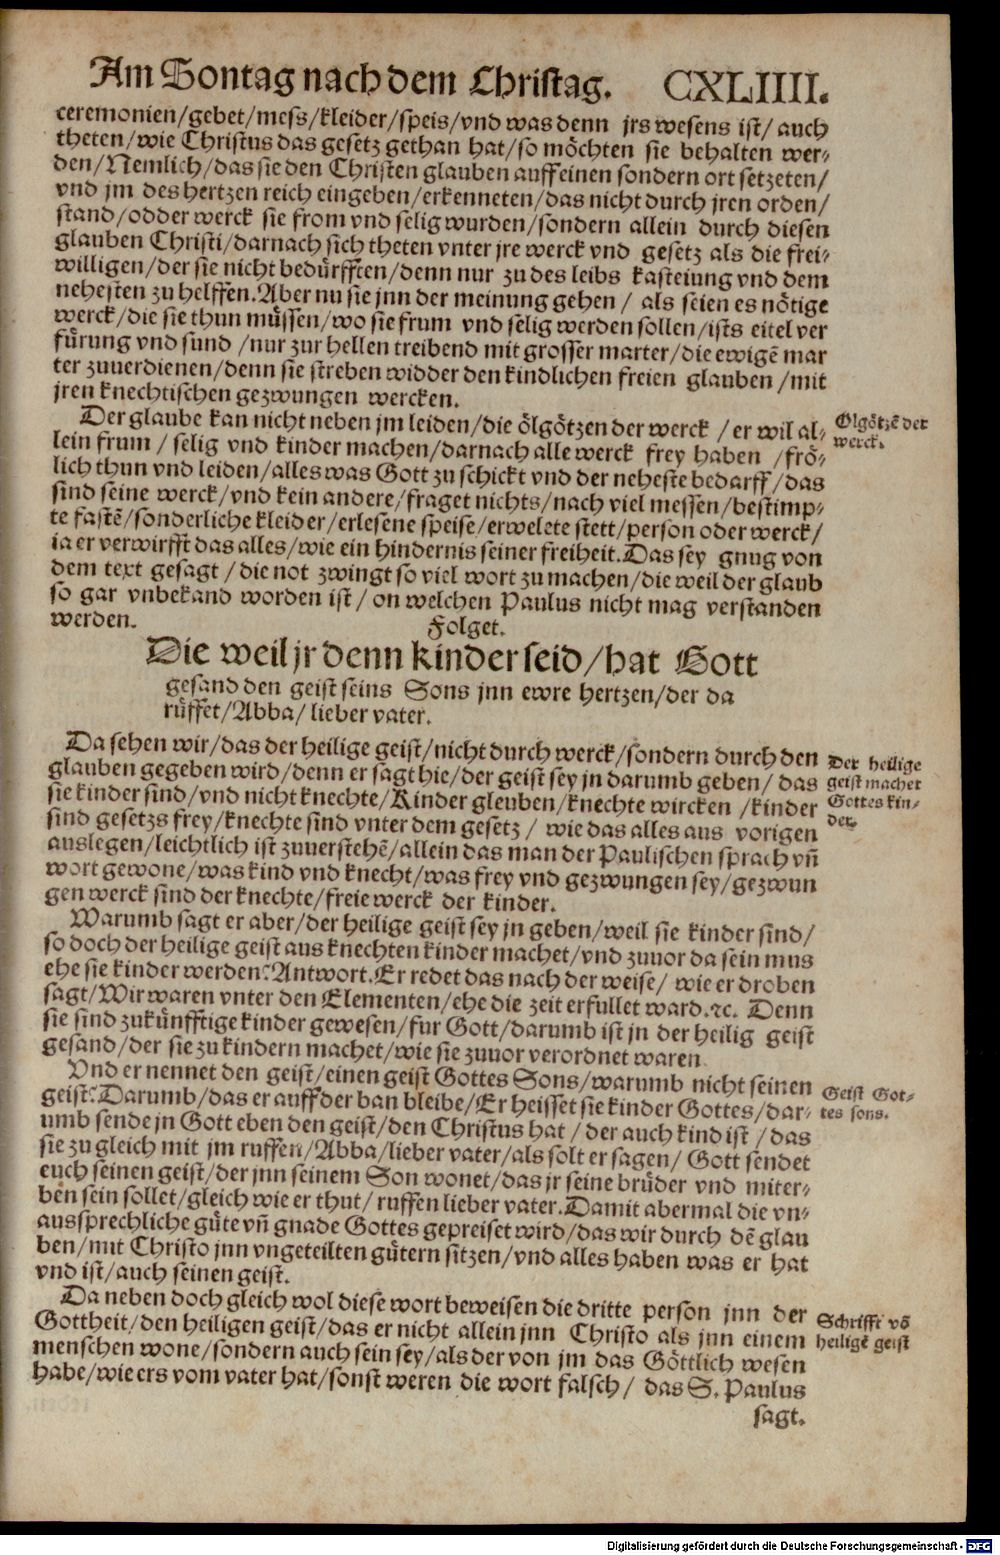 Am Sontag nach dem Christag. CXLIIII.
ceremonien/gebet/mess/kleider/speis/vnd was denn jrs wesens ist/ auch
theten/wie Christus das gesetz gethan hat/so möchten sie behalten wer-
den/Nemlich/das sie den Christen glauben auff einen sondern ort setzeten/
vnd jm des hertzen reich eingeben/erkenneten/das nicht durch jren orden/
stand/odder werck sie from vnd selig wurden/sondern allein durch diesen
glauben Christi/darnach sich theten vnter jre werck vnd gesetz als die frei-
willigen/der sie nicht bedürfften/denn nur zu des leibs kasteiung vnd dem
nehesten zu helffen. Aber nu sie jnn der meinung gehen / als seien es nötige
werck/die sie thun müssen/wo sie frum vnd selig werden sollen/ists eitel ver
fürung vnd sund /nur zur hellen treibend mit grosser marter/die ewigē mar
ter zuuerdienen/denn sie streben widder den kindlichen freien glauben /mit
jren knechtischen gezwungen wercken.
Der glaube kan nicht neben jm leiden/die ölgötzen der werck / er wil al-
lein frum / selig vnd kinder machen/darnach alle werck frey haben /frö-
lich thun vnd leiden/alles was Gott zu schickt vnd der neheste bedarff/das
sind seine werck/vnd kein andere/fraget nichts/nach viel messen/bestimp-
te fastē/sonderliche kleider/erlesene speise/erwelete stett/person oder werck/
ia er verwirfft das alles/wie ein hindernis seiner freiheit. Das sey gnug von
dem text gesagt / die not zwingt so viel wort zu machen/die weil der glaub
so gar vnbekand worden ist / on welchen Paulus nicht mag verstanden
werden.
Ölgötzē der
werck.
Folget.
Die weil jr denn kinder seid/hat Gott
gesand den geist seins Sons jnn ewre hertzen/der da
rüffet/Abba/ lieber vater.
Da sehen wir/das der heilige geist/nicht durch werck/sondern durch den
glauben gegeben wird/denn er sagt hie/der geist sey jn darumb geben/ das
sie kinder sind/vnd nicht knechte/Kinder gleuben/knechte wircken /kinder
sind gesetzs frey/knechte sind vnter dem gesetz / wie das alles aus vorigen
auslegen/leichtlich ist zuuerstehē/allein das man der Paulischen sprach vñ
wort gewone/was kind vnd knecht/was frey vnd gezwungen sey/gezwun
gen werck sind der knechte/freie werck der kinder.
Der heilige
geist machet
Gottes kin-
der.
Warumb sagt er aber/der heilige geist sey jn geben/weil sie kinder sind/
so doch der heilige geist aus knechten kinder machet/vnd zuuor da sein mus
ehe sie kinder werden? Antwort. Er redet das nach der weise/ wie er droben
sagt/Wir waren vnter den Elementen/ehe die zeit erfullet ward.ꝛc. Denn
sie sind zukünfftige kinder gewesen/fur Gott/darumb ist jn der heilig geist
gesand/der sie zu kindern machet/wie sie zuuor verordnet waren.
Vnd er nennet den geist/einen geist Gottes Sons/warumb nicht seinen
geist? Darumb/das er auff der ban bleibe/Er heisset sie kinder Gottes/dar-
umb sende jn Gott eben den geist/den Christus hat / der auch kind ist / das
sie zu gleich mit jm ruffen/Abba/lieber vater/als solt er sagen/ Gott sendet
euch seinen geist/der jnn seinem Son wonet/das jr seine brüder vnd miter-
ben sein sollet/gleich wie er thut/ ruffen lieber vater. Damit abermal die vn-
aussprechliche güte vñ gnade Gottes gepreiset wird/das wir durch dē glau
ben/mit Christo jnn vngeteilten gütern sitzen/vnd alles haben was er hat
vnd ist/auch seinen geist.
Geist Got-
tes sons.
Da neben doch gleich wol diese wort beweisen die dritte person jnn der
Gottheit/den heiligen geist/das er nicht allein jnn Christo als jnn einem
menschen wone/sondern auch sein sey/als der von jm das Göttlich wesen
habe/wie ers vom vater hat/sonst weren die wort falsch/ das S. Paulus
Schrifft vō
heiligē geist
sagt.
Digitalisierung gefördert durch die Deutsche Forschungsgemeinschaft - DFG